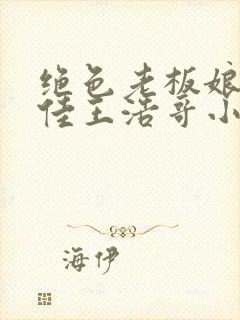 绝色老板娘
佳王浩哥小
海伊